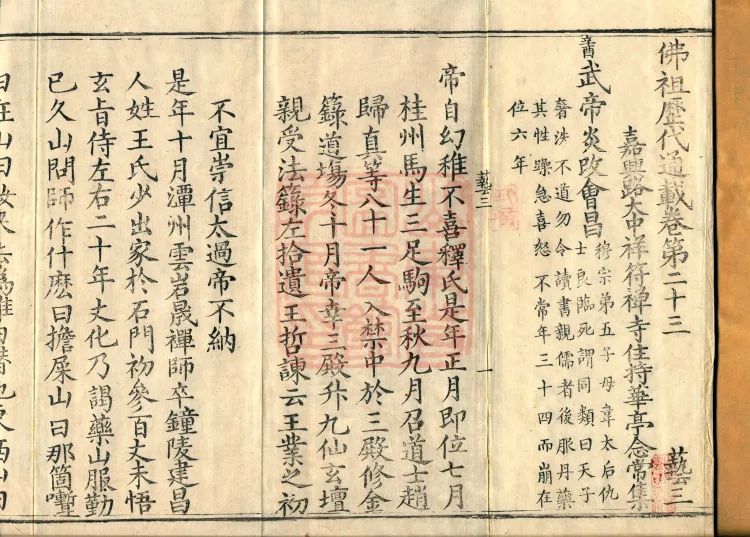 佛祖歷代通載卷第二十三 藝三
嘉興路大中祥符禪寺住持華亭念常集
武帝炎改會昌
穆宗第五子母韋太后仇
士良臨死謂同類曰天子
奢涉不道勿令讀書親儒者後服丹藥
其性躁急喜怒不常年三十四而崩在
位六年
藝三 一
帝自幻稚不喜釋氏是年正月即位七月
桂州馬生三足駒至秋九月召道士趙
歸真等八十一人入禁中於三殿修金
籙道場冬十月帝幸三殿升九仙玄壇
親受法籙左拾遺王哲諫云王業之初
不宜崇信太過帝不納
是年十月潭州雲岩晟禪師卒鐘陵建昌
人姓王氏少出家於石門初參百丈未悟
玄旨侍左右二十年丈化乃謁藥山服勤
已久山問師作什麽曰擔屎山曰那箇嚽